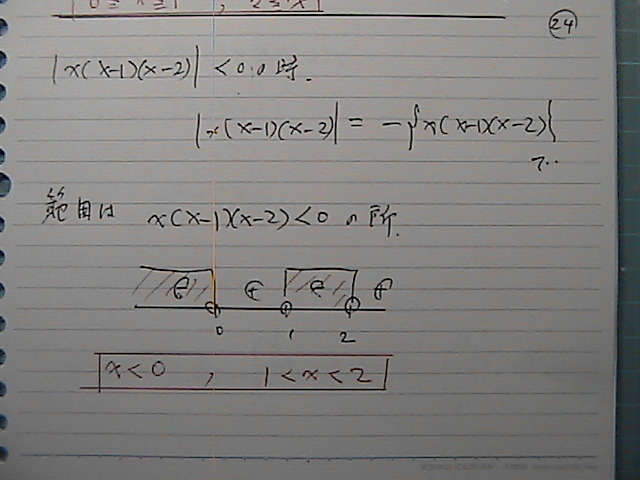 0≦x≦1 , 2≦x
24
|x(x-1)(x-2)| < 0の時.
|x(x-1)(x-2)| = -{x(x-1)(x-2)}
で..
範囲は x(x-1)(x-2)<0 の所.
⊖ ⊕ ⊖ ⊕
0 1 2
x<0 , 1<x<2